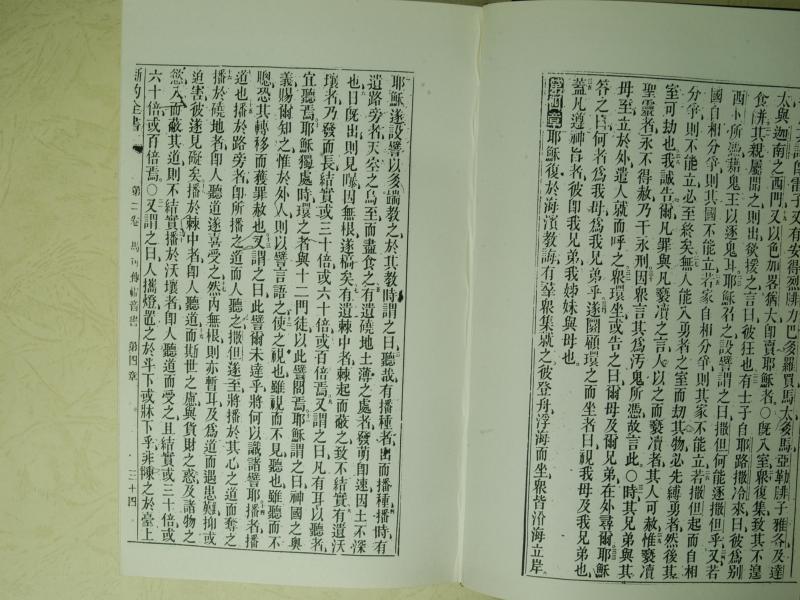 太與迦南之西門又以色加畧猶大卽賣耶穌者○旣入室衆復集致其不遑
食餅其親屬聞之則出欲援之言曰彼狂也有士子自耶路撒冷來曰彼爲別
西卜所憑藉鬼王以逐鬼耳耶穌召之設譬謂之曰撒但何能逐撒但乎又若
國自相分爭則其國不能立若家自相分爭則其家不能立若撒但起而自相
分爭則不能立必至終矣無人能入勇者之室而刧其物必先縛勇者然後其
室可刧也我誠告爾凡罪與凡褻瀆之言人以之而褻瀆者其人可赦惟褻瀆
聖靈者永不得赦乃干永刑因衆言其爲汚鬼所憑故言此○時其兄弟與其
母至立於外遣人就而呼之衆環坐或告之曰爾母及爾兄弟在外尋爾耶穌
答之曰何者爲我母爲我兄弟乎遂圜顧環之而坐者曰視我母及我兄弟也
蓋凡遵神旨者彼卽我兄弟我姊妹與母也
第四章耶穌復於海濱教誨有羣衆集就之彼登舟浮海而坐衆皆沿海立岸
耶穌遂設譬以多端教之於其教時謂之曰聽哉有播種者出而播種播時有
遺路旁者天空之鳥至而盡食之有遺磽地土薄之處者發萌卽速因土不深
也日旣出則見曝因無根遂槁矣有遺棘中者棘起而蔽之致不結實有遺沃
壤者乃發而長結實或三十倍或六十倍或百倍焉又謂之曰凡有耳以聽者
宜聽焉耶穌獨處時環之者與十二門徒以此譬問焉耶穌謂之曰神國之奧
義賜爾知之惟於外人則以譬言語之使之視也雖視而不見聽也雖聽而不
聰恐其轉移而獲罪赦也又謂之曰此譬爾未達乎將何以識諸譬耶播者播
道也播於路旁者卽所播之道而人聽之撒但遂至將播於其心之道而奪之
播於磽地者卽人聽道遂喜受之然內無根則亦暫耳及爲道而遇患難抑或
迫害彼遂見礙矣播於棘中者卽人聽道而斯世之慮與貨財之惑及諸物之
慾入而蔽其道則不結實播於沃壤者卽人聽道而受之且結實或三十倍或
六十倍或百倍焉○又謂之曰人攜燈置之於斗下或牀下乎非陳之於臺上
新約全書 第二卷 馬可傳福音書 第四章 三十四